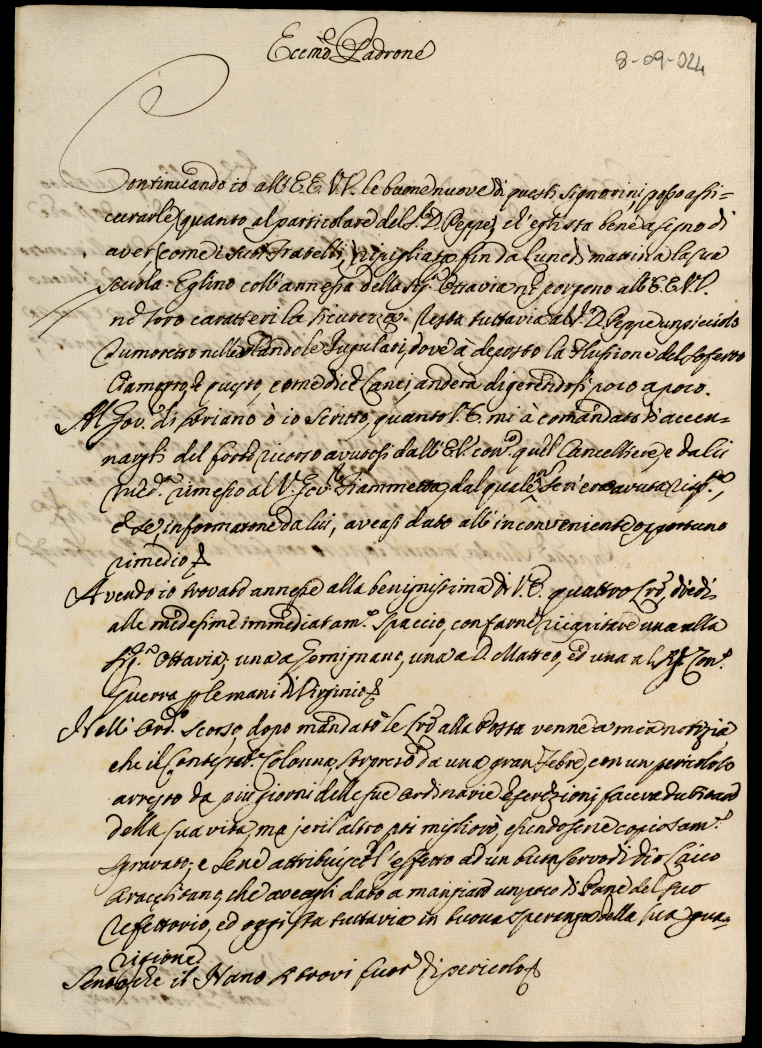 Eccmo Padrone
8-09-024
Continuando io all'E.E. V.V. le buone nuove di questi Signorini, posso assi=
curarle, quanto al particolare del S. D. Peppe, ch'egli sta bene a segno di
aver, come i suoi Fratelli, ripigliata fin da Lunedì mattina la sua
scuola. Eglino coll'annessa della Sig.ra Ottavia ne porgono all'E.E. V.V.
ne loro caratteri la sicurezza. Resta tuttavia al S. D. Peppe un picciolo
tumoretto nelle Glandole Jugulari, dove à deposto la flusione del sofferto
Ciamorro, e questo, come dice Lanci, anderà digerendosi poco a poco.
Al Gov.re di Soriano ò io scritto, quanto V.E. mi à comandato d'accen=
nargli del forte ricorso avutosi dall'E.V. con.o quel Cancelliere, e da lei
med.a rimesso al V. Gov.re Fiammetta, dal quale non sen'era avuta risp.a,
e se, informatone da lui, aveasi dato all'inconveniente opportuno
rimedio.
Avendo io trovato annesse alla benignissima di V.E. quattro Lre, diedi
alle medesime immediatam.e spaccio, con farne ricapitare una alla
Sig.ra Ottavia, una a Gemignano, una a D. Matteo, ed una al Con.e
Guerra p le mani di Virginio.
Nell'Ord.o scorso, dopo mandate le Lre alla Posta venne a mia notizia
che il Contestab. Colonna, sorpreso da una gran febre, con un pericoloso
arresto da più giorni delle sue ordinarie eserezioni, faceva dubitare
della sua vita, ma jeri l'altro poi migliorò, essendosene copiosam.e
sgravato; e se ne attribuisce l'effetto ad un buon servo di Dio Laico
Aracelitano, che aveagli dato a mangiare un poco di Pane del suo
Refettorio, ed oggi sta tuttavia in buona speranza della sua gua=
rigione
Sento, che il Nano si trovi fuor di pericolo